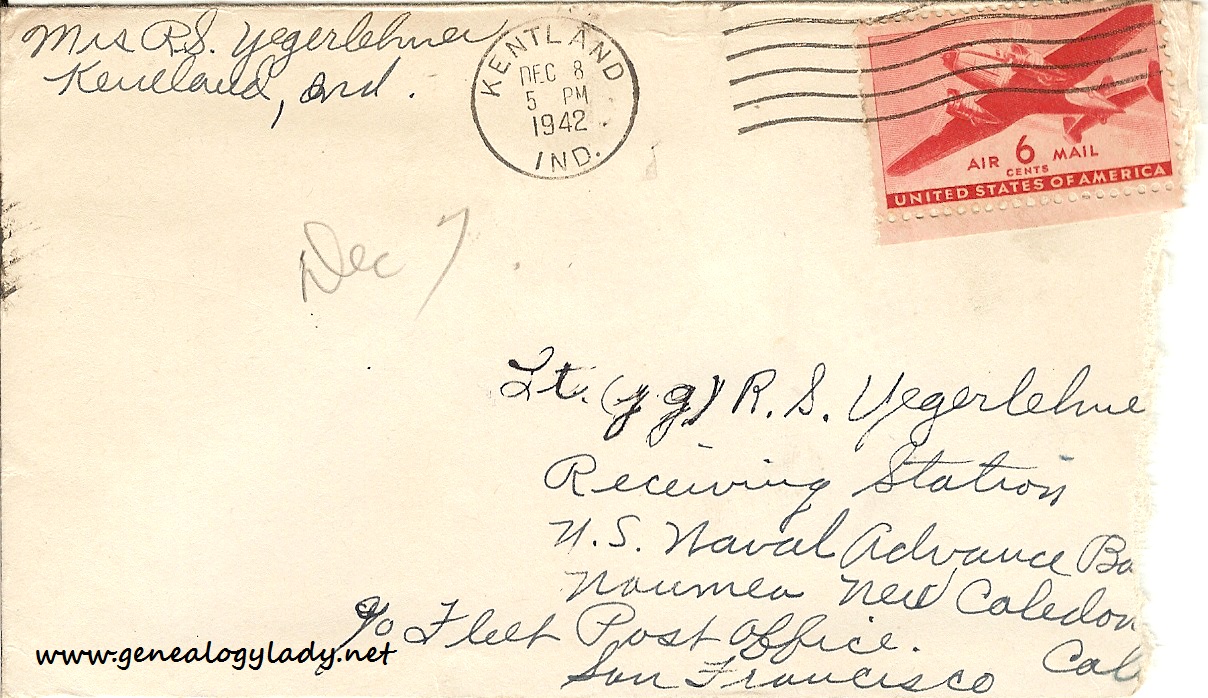 Mrs R.S. Yegerlehner
Kentland, Ind.
KENTLAND
DEC 8
5 PM
1942
IND.
AIR 6 MAIL
CENTS
UNITED STATES OF AMERICA
Dec 7
Lt. (jg) R. S. Yegerlehne
Receiving Station
U.S. Naval Advance Ba
Noumea New Caledon
c/o Fleet Post Office.
San Francisco Cal
www.genealogylady.net